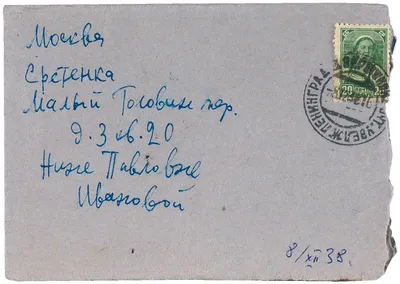 Москва
Сретенка
Малый Головин пер.
д. 3 кв. 20
Нине Павловне
Ивановой
ЛЕНИНГРАД
20
8/XII 39.